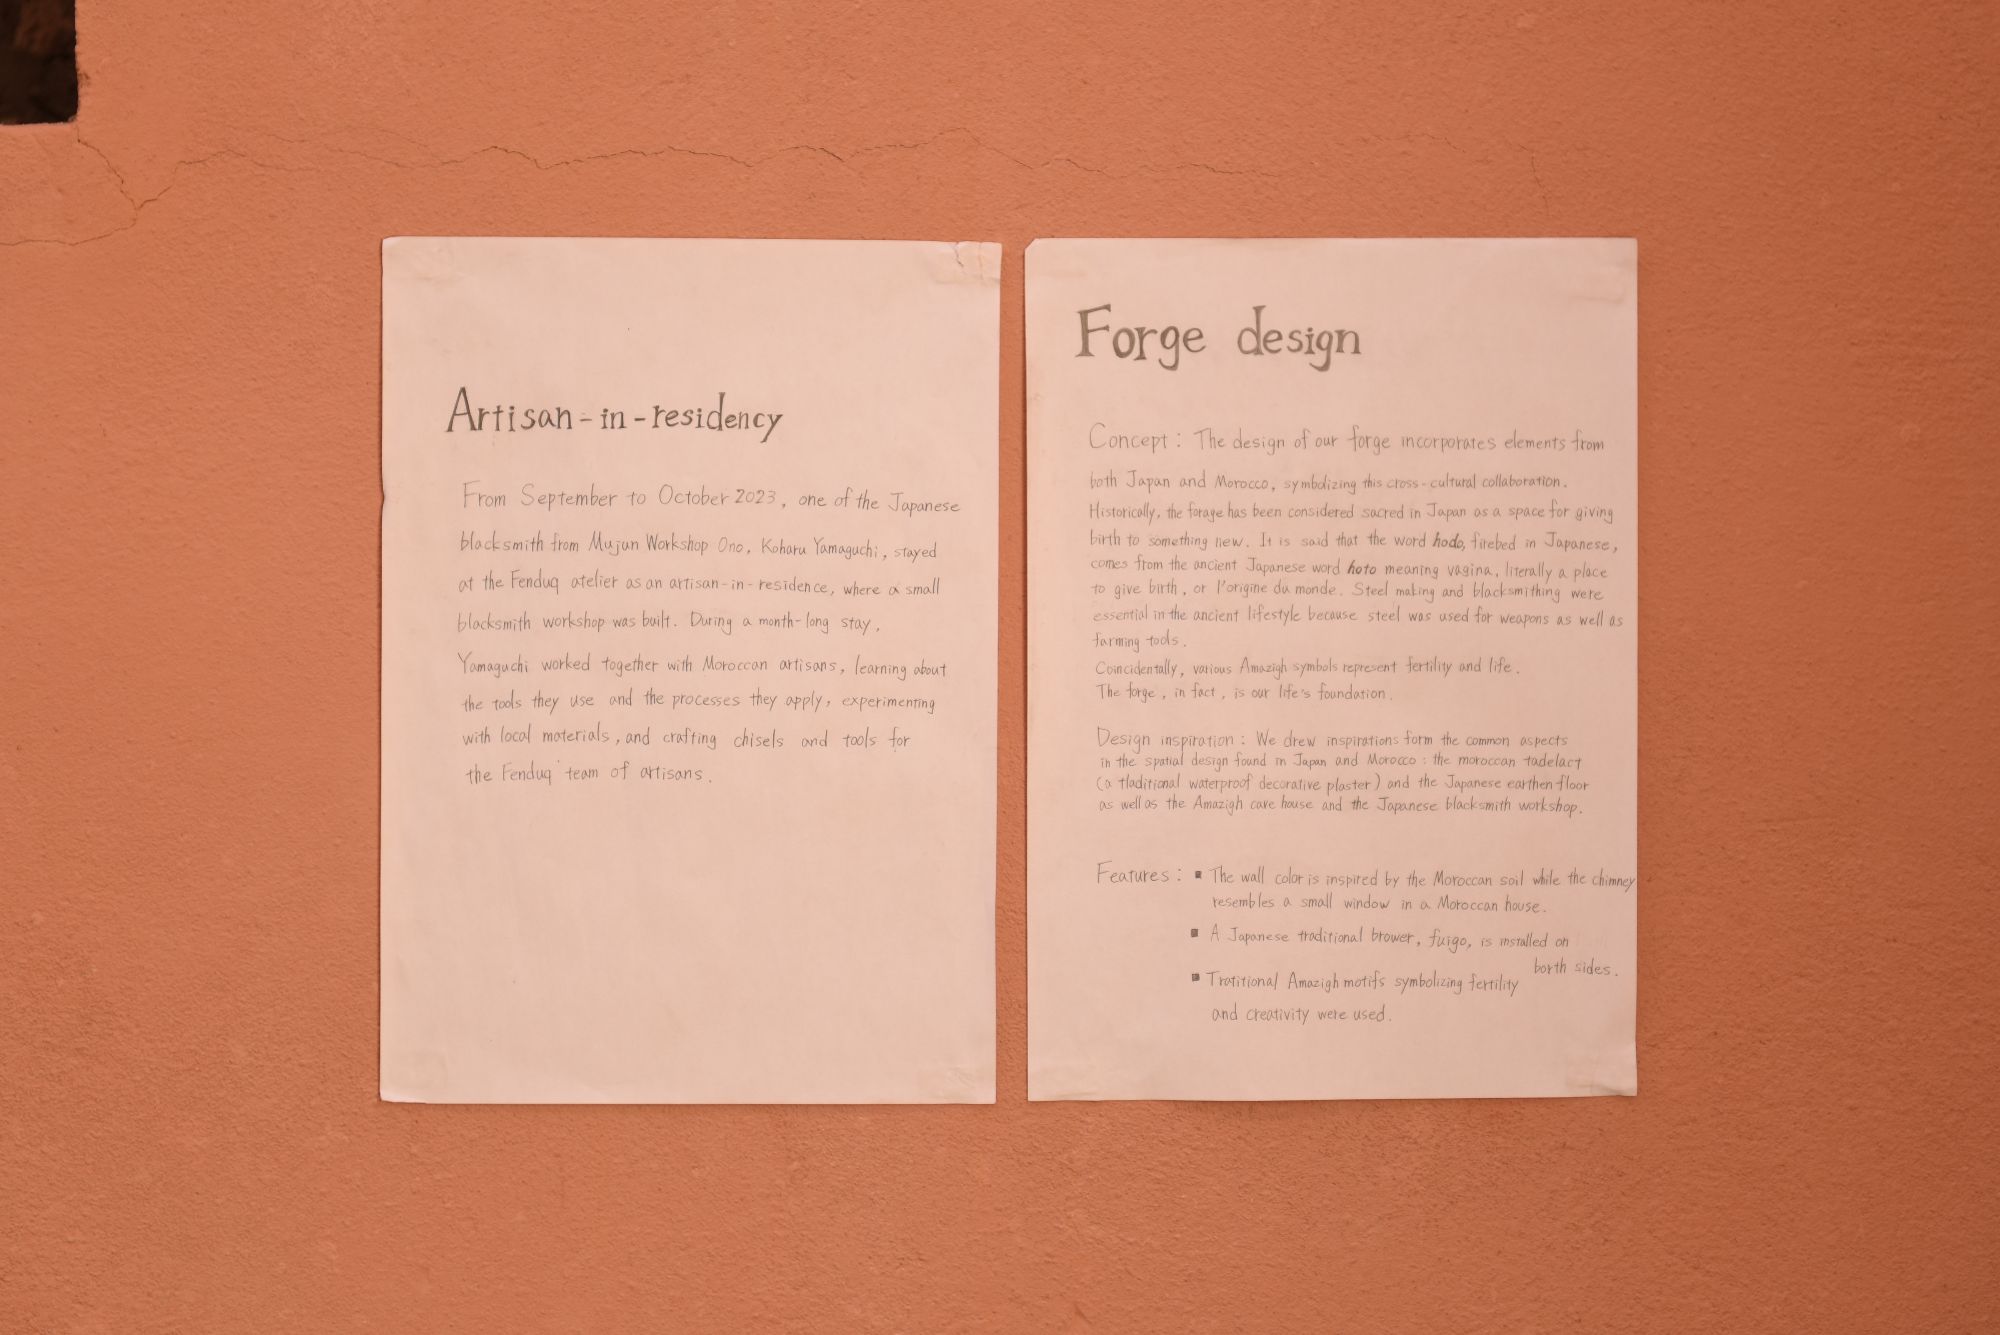 Artisan-in-residency
From September to October 2023, one of the Japanese
blacksmith from Mujun Workshop Ono, Koharu Yamaguchi, stayed
at the Fenduq atelier as an artisan-in-residence, where a small
blacksmith workshop was built. During a month-long stay,
Yamaguchi worked together with Moroccan artisans, learning about
the tools they use and the processes they apply, experimenting
with local materials, and crafting chisels and tools for
the Fenduq team of artisans.
Forge design
Concept: The design of our forge incorporates elements from
both Japan and Morocco, symbolizing this cross-cultural collaboration.
Historically, the forage has been considered sacred in Japan as a space for giving
birth to something new. It is said that the word hodo, firebed in Japanese,
comes from the ancient Japanese word hoto meaning vagina, literally a place
to give birth, or l'origine du monde. Steel making and blacksmithing were
essential in the ancient lifestyle because steel was used for weapons as well as
farming tools.
Coincidentally, various Amazigh symbols represent fertility and life.
The forge, in fact, is our life's foundation.
Design inspiration: We drew inspirations form the common aspects
in the spatial design found in Japan and Morocco: the moroccan tadelact
(a tladitional waterproof decorative plaster) and the Japanese earthen floor
as well as the Amazigh cave house and the Japanese blacksmith workshop.
Features: ▪ The wall color is inspired by the Moroccan soil while the chimney
resembles a small window in a Moroccan house.
▪ A Japanese traditional brower, fuigo, is installed on
borth sides.
▪ Tratitional Amazigh motifs symbolizing fertility
and creativity were used.